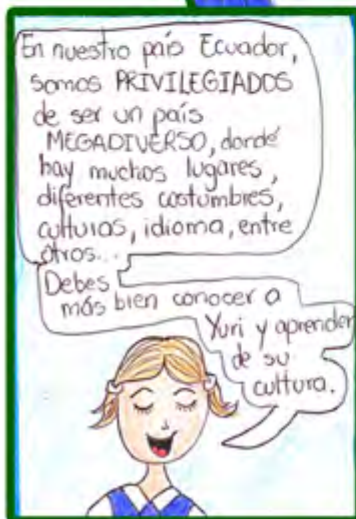 En nuestro país Ecuador,
somos PRIVILEGIADOS
de ser un país
MEGADIVERSO, donde
hay muchos lugares,
diferentes costumbres,
culturas, idioma, entre
otros...
Debes
más bien conocer a
Yuri y aprender
de su
cultura.